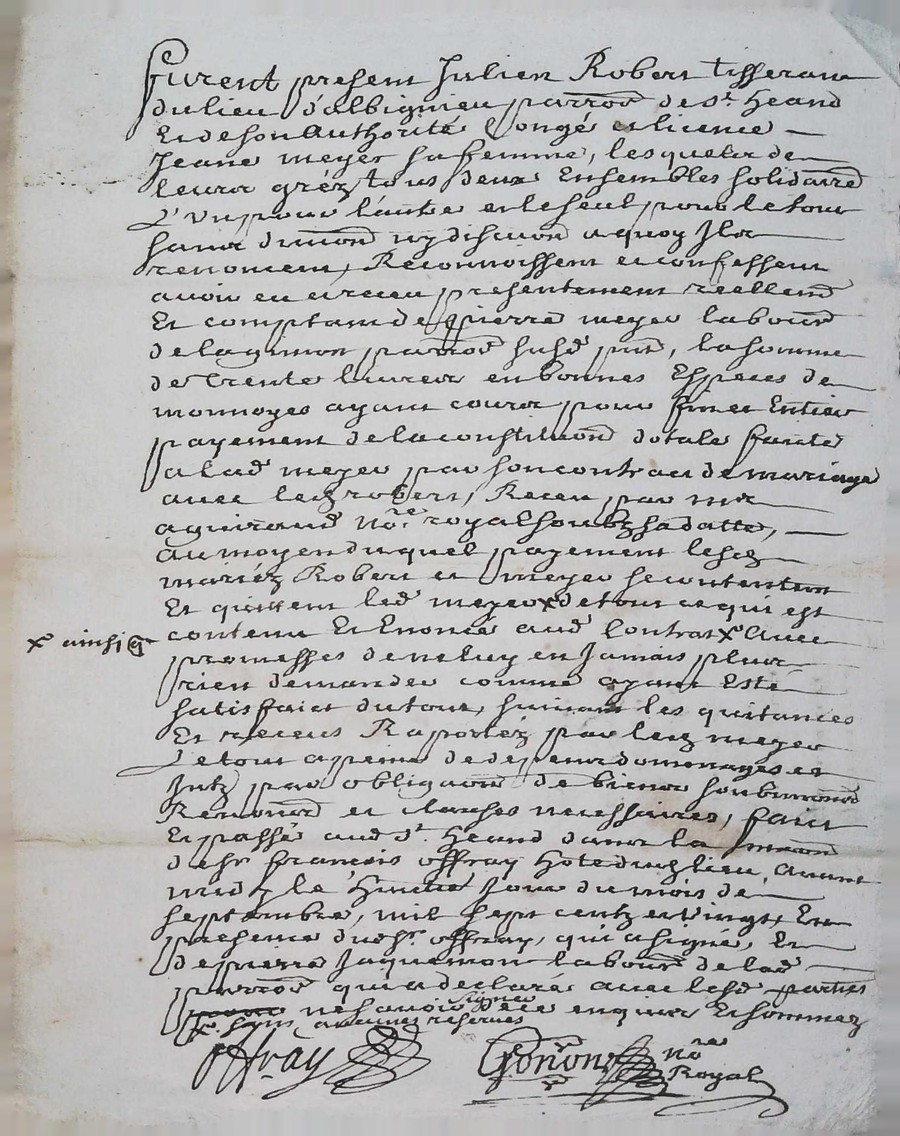 furent present Julien Robert tisseran
du lieu d'albignieu parroẽ de st heand
Et de son Authorité Congé et licence
Jeane meyer sa femme, lesquels de
leurs gréz tous deux Ensembles solidairẽ
L'un pour l'autre et le seul pour le tout
sans diuisioñ ny discuoñ a quoy Ils
renoncent, Reconnoissent et confessent
auoir eu et receu presentement reellemẽ
Et comptant de pierre meyer labourẽ
de lagimon parroẽ susd pnt, la somme
de trente liures en bonnes Especes de
monnoyes ayant cours pour fin et Entier
payement de la constituoñ dotale faite
a lad meyer par son contract de mariage
auec led robert, Receu par me
aguiraud nore royal soubz sa datte,
au moyen duquel payement lesd
mariéz Robert et meyer se contentent
Et quittent led meyer de tout ce qui est
x ainsi q
contenu Et Enoncé aud Contrat x Auec
promesses de ne luy en Jamais plus
rien demander comme ayant Esté
satisfaict du tout, suiuant les quitances
Et receus Raportéz par led meyer
Le tout a peine de despens domages et
Intz par obligaoñ de biens soubmissioñ
Renonoñ et clauses necessaires, faict
Et passé aud st heand dans la maisoñ
de sr francois offray hote dud lieu, auant
midy le huictie Jour du mois de
septembre, mil sept centz et vingt, En
presence dud sr offray, qui a signé, Et
de pierre Jaquemon labourẽ de lad
parroẽ qui a declaré auec lesd parties
ne sauoir signer de ce enquis Et sommez
sans aucunes reserues
Offray
Gonon nore
Royal